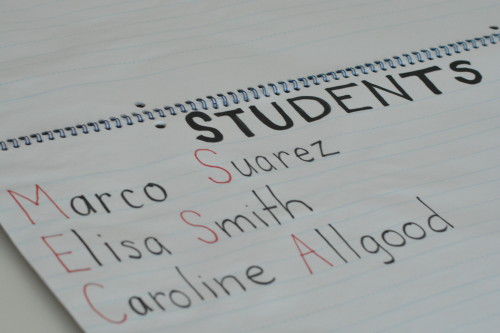 STUDENTS
Marco Suarez
Elisa Smith
Caroline Allgood